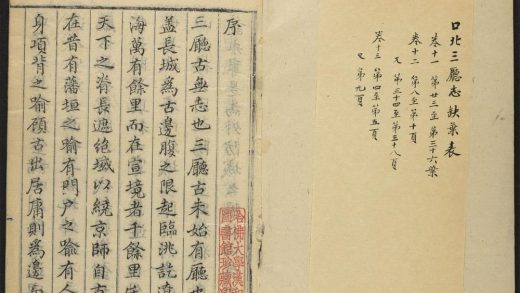 口北三廳志缺葉表
卷十一 第廿三至第三十六葉
卷十二 第八至第十頁
又 第三十四至第三十八頁
卷十三 第四至第五頁
又 第九頁
序
三廳古無志也三廳古未始有廳也
蓋長城為古邊腹之限起臨洮訖遼
海萬有餘里而在宣境者千餘里
天下之脊長遮絶域以繞京師自古
在昔有藩垣之喻有門户之喻有人
身項背之喻顧古出居庸則為邊
哈佛大學漢和
圖書館珍藏